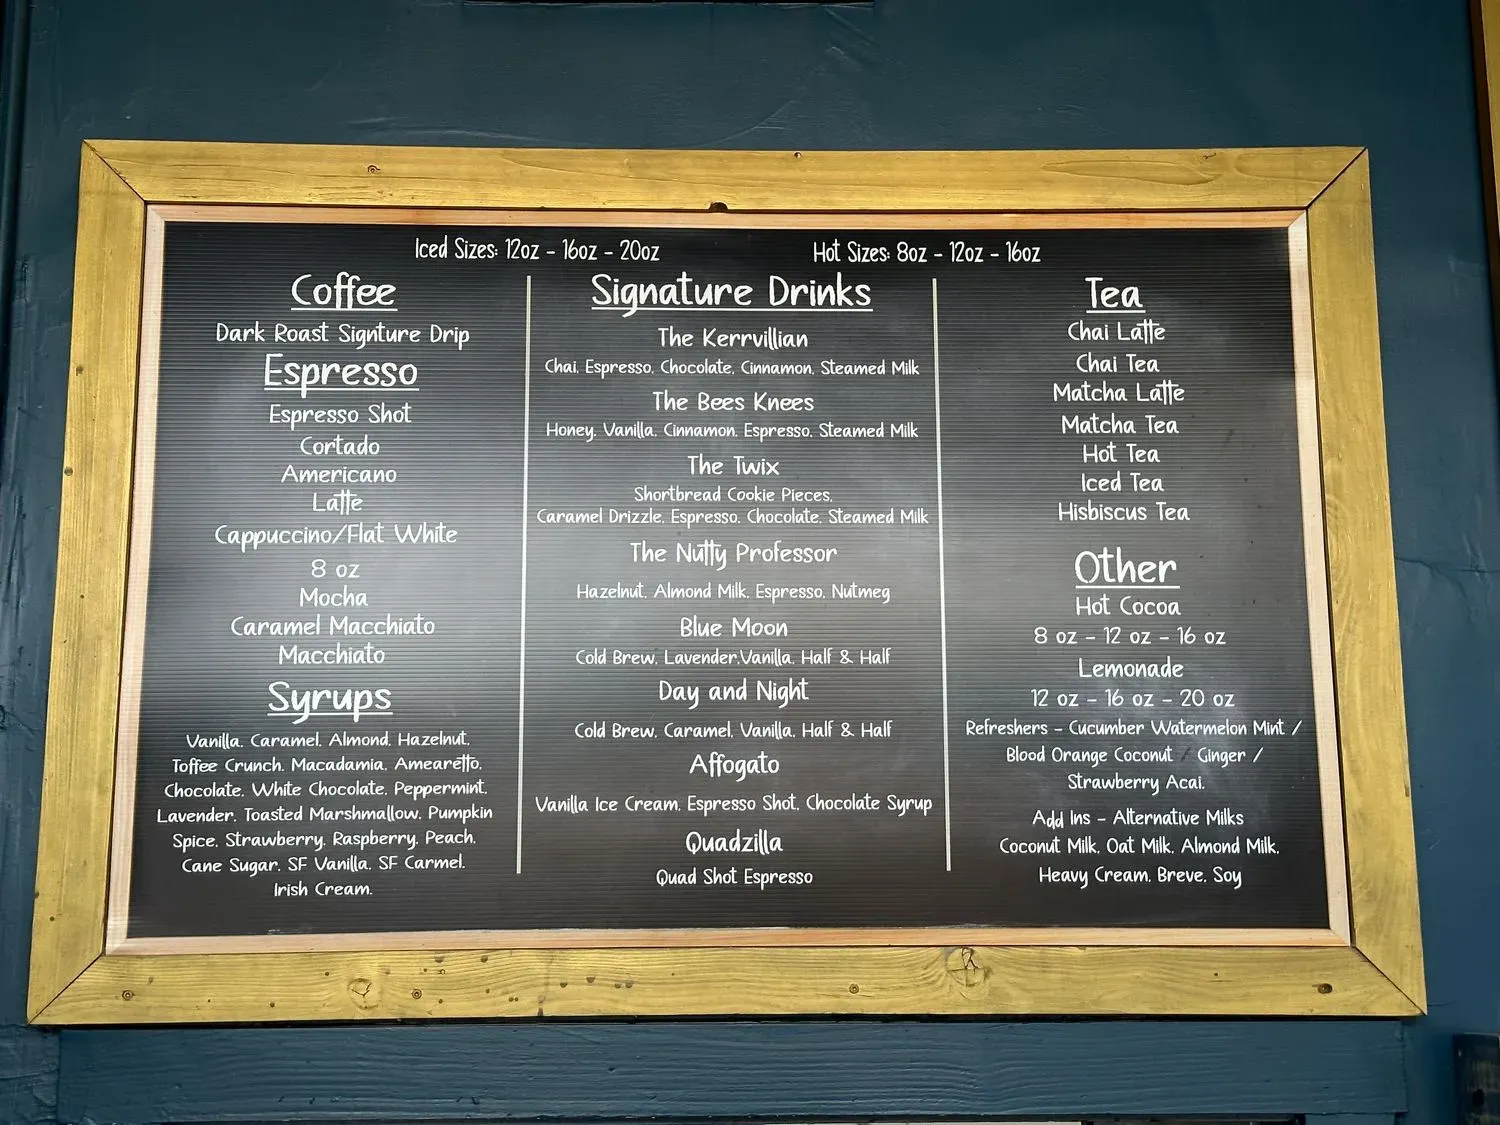 Iced Sizes: 12oz - 16oz - 20oz
Hot Sizes: 8oz - 12oz - 16oz
Coffee
Dark Roast Signture Drip
Espresso
Espresso Shot
Cortado
Americano
Latte
Cappuccino/Flat White
8 oz
Mocha
Caramel Macchiato
Macchiato
Syrups
Vanilla, Caramel, Almond, Hazelnut,
Toffee Crunch, Macadamia, Amearetto,
Chocolate, White Chocolate, Peppermint,
Lavender, Toasted Marshmallow, Pumpkin
Spice, Strawberry, Raspberry, Peach,
Cane Sugar, SF Vanilla, SF Carmel,
Irish Cream.
Signature Drinks
The Kerrvillian
Chai, Espresso, Chocolate, Cinnamon, Steamed Milk
The Bees Knees
Honey, Vanilla, Cinnamon, Espresso, Steamed Milk
The Twix
Shortbread Cookie Pieces,
Caramel Drizzle, Espresso, Chocolate, Steamed Milk
The Nutty Professor
Hazelnut, Almond Milk, Espresso, Nutmeg
Blue Moon
Cold Brew, Lavender,Vanilla, Half & Half
Day and Night
Cold Brew, Caramel, Vanilla, Half & Half
Affogato
Vanilla Ice Cream, Espresso Shot, Chocolate Syrup
Quadzilla
Quad Shot Espresso
Tea
Chai Latte
Chai Tea
Matcha Latte
Matcha Tea
Hot Tea
Iced Tea
Hisbiscus Tea
Other
Hot Cocoa
8 oz - 12 oz - 16 oz
Lemonade
12 oz - 16 oz - 20 oz
Refreshers - Cucumber Watermelon Mint /
Blood Orange Coconut / Ginger /
Strawberry Acai.
Add Ins - Alternative Milks
Coconut Milk, Oat Milk, Almond Milk,
Heavy Cream, Breve, Soy